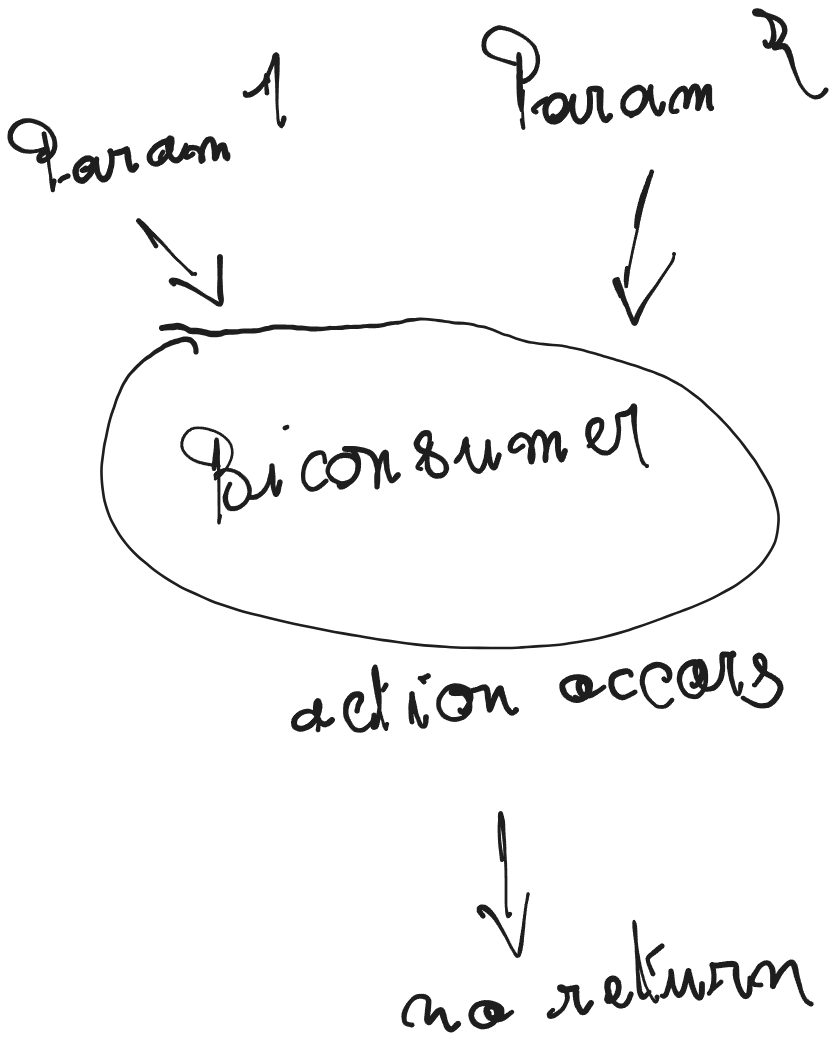 Param 1
Param 2
Biconsumer
action accors
no return